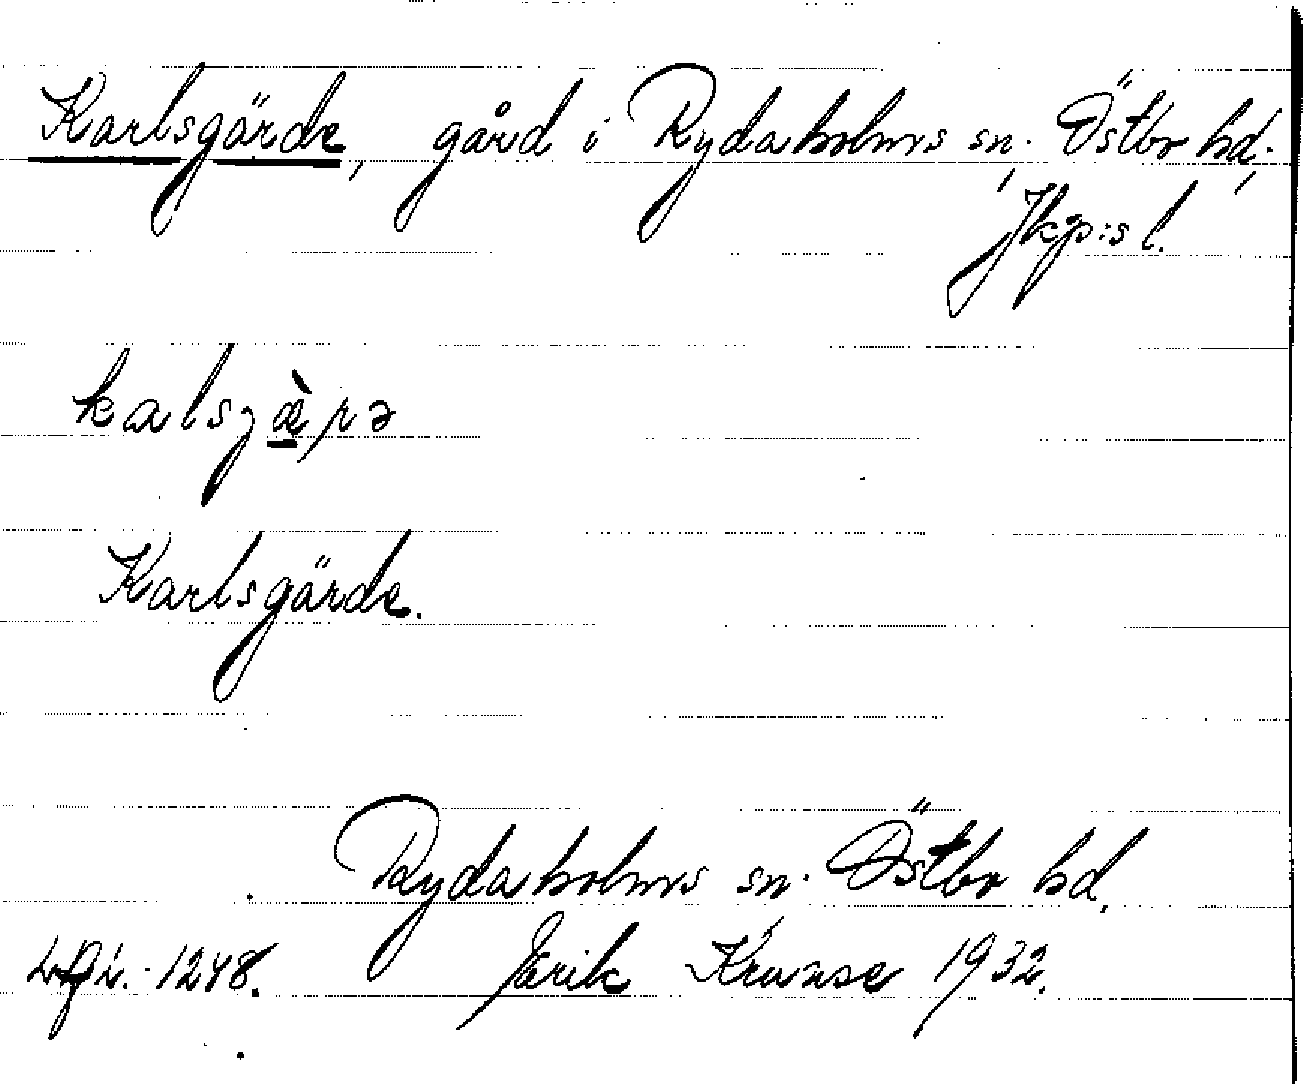 Karlsgärde, gård i Rydaholms sn. Östbo hd.
Jkp:s l.
Karlsgärde.
Rydaholms sn. Östbo hd.
1248. Erik Kruuse 1932.